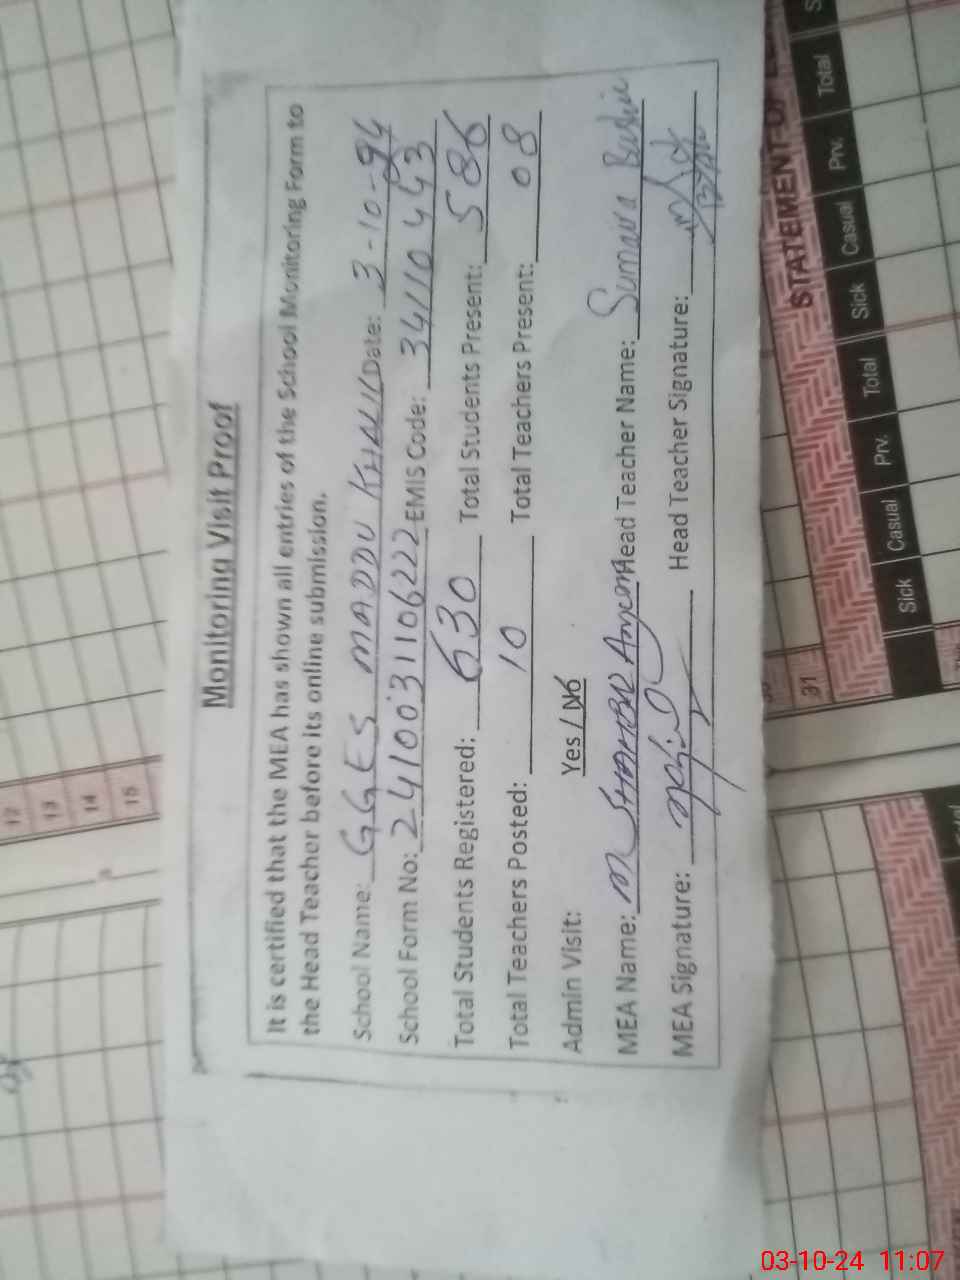 Monitoring Visit Proof
It is certified that the MEA has shown all entries of the School Monitoring Form to
the Head Teacher before its online submission.
School Name: GGES MADDU KHAIL Date: 3-10-24
School Form No: 2410031106222 EMIS Code: 34110443
Total Students Registered: 630 Total Students Present: 586
Total Teachers Posted: 10 Total Teachers Present: 08
Admin Visit: Yes / No
MEA Name: M Head Teacher Name: Sumaira
MEA Signature: Head Teacher Signature:
12
13
14
15
31
STATEMENT OF
Sick Casual Prv. Total Sick Casual Prv. Total S
03-10-24 11:07